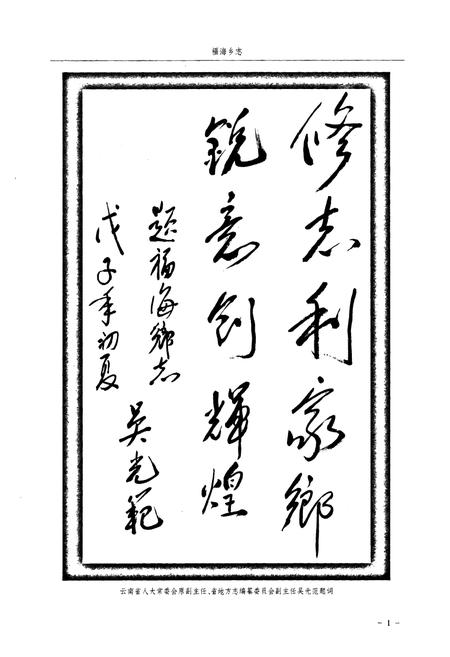 福海乡志
修志利家鄉
銳意创輝煌
题福海鄉志
戊子年初夏
吴光範
云南省人大常委会原副主任、省地方志编纂委员会副主任吴光范题词
- 1 -